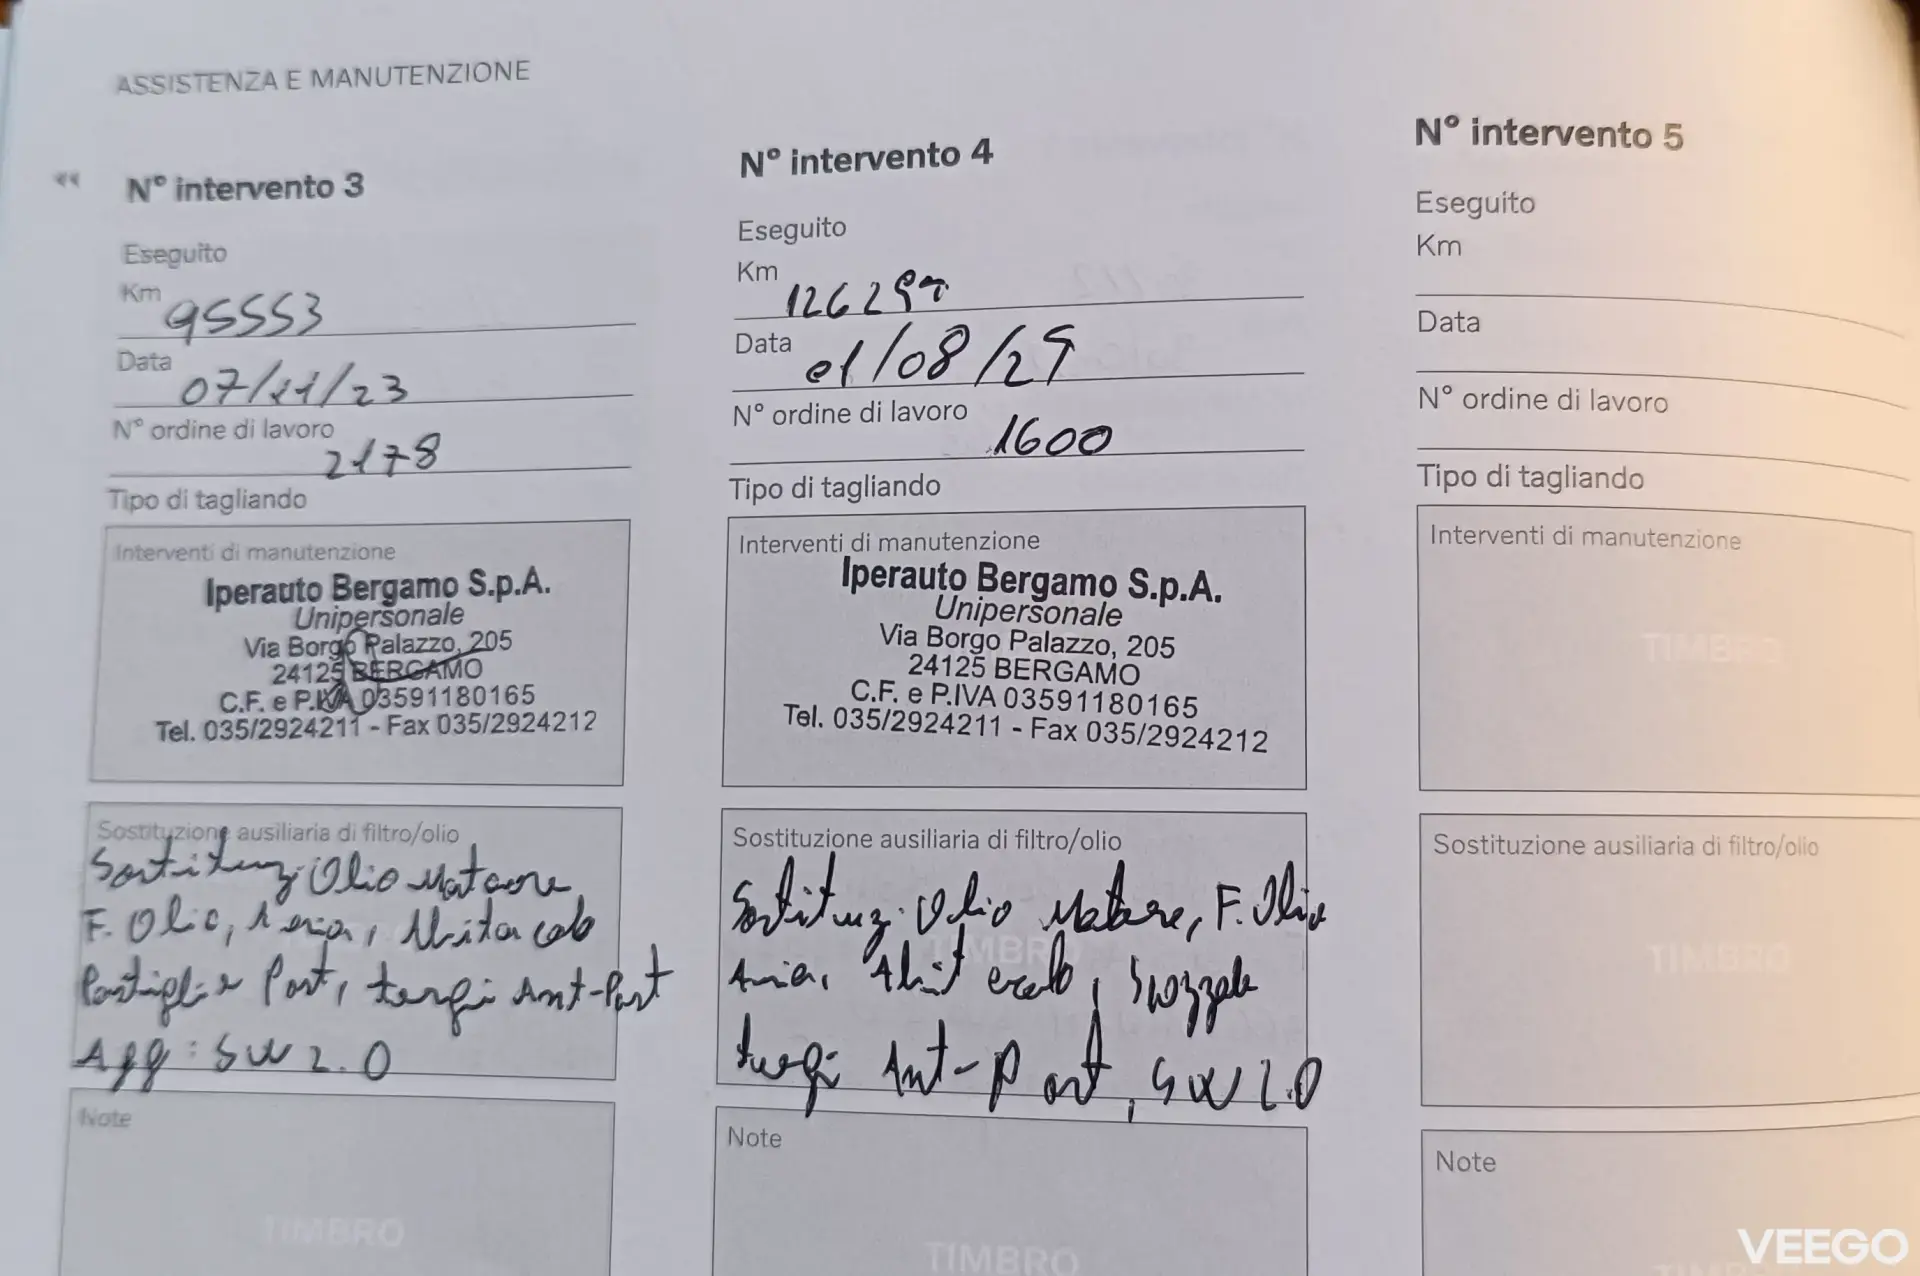 ASSISTENZA E MANUTENZIONE
N° intervento 3
Eseguito
Km 95553
Data 07/11/23
N° ordine di lavoro 2178
Tipo di tagliando
Interventi di manutenzione
Iperauto Bergamo S.p.A.
Unipersonale
Via Borgo Palazzo, 205
24125 BERGAMO
C.F. e P.IVA 03591180165
Tel. 035/2924211 - Fax 035/2924212
Sostituzione ausiliaria di filtro/olio
Olio Motore
F. Olio, Aria, Abitacolo
Pastiglie Post, tergi Ant-Post
Agg: SW 2.0
Note
TIMBRO
N° intervento 4
Eseguito
Km
Data
N° ordine di lavoro 1600
Tipo di tagliando
Interventi di manutenzione
Iperauto Bergamo S.p.A.
Unipersonale
Via Borgo Palazzo, 205
24125 BERGAMO
C.F. e P.IVA 03591180165
Tel. 035/2924211 - Fax 035/2924212
Sostituzione ausiliaria di filtro/olio
TIMBRO
Olio Motore, F. Olio
Aria, Spazzole
tergi Ant-Post, SW 2.0
Note
TIMBRO
N° intervento 5
Eseguito
Km
Data
N° ordine di lavoro
Tipo di tagliando
Interventi di manutenzione
TIMBRO
Sostituzione ausiliaria di filtro/olio
TIMBRO
Note
TIMBRO
VEEGO